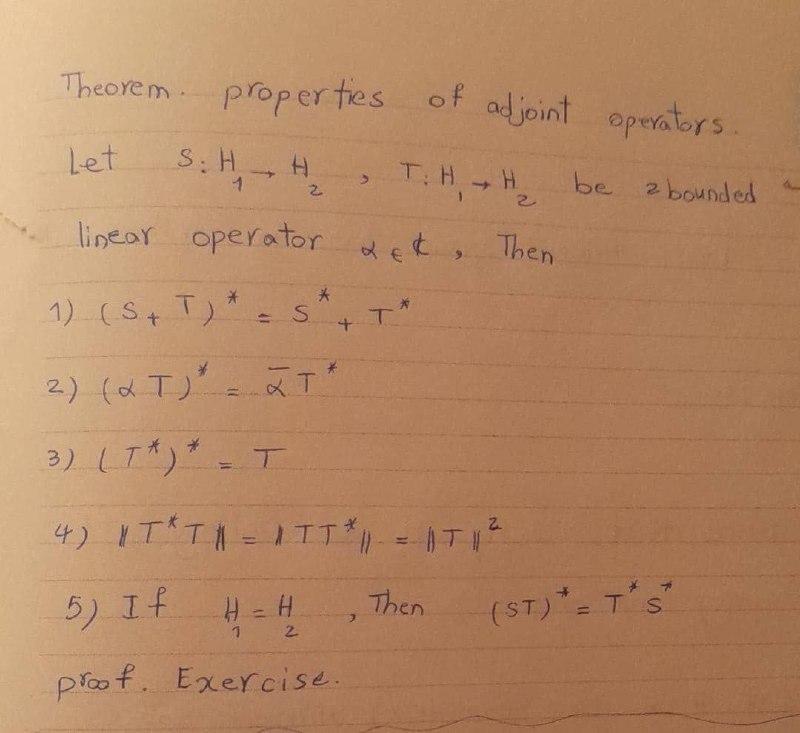 Theorem. properties of adjoint operators.
Let S: H₁ → H₂ , T: H₁ → H₂ be 2 bounded
linear operator α ∈ ℂ , Then
1) (S + T)* = S* + T*
2) (αT)* = ᾱT*
3) (T*)* = T
4) ‖T*T‖ = ‖TT*‖ = ‖T‖²
5) If H₁ = H₂ , Then (ST)* = T*S*
proof. Exercise.